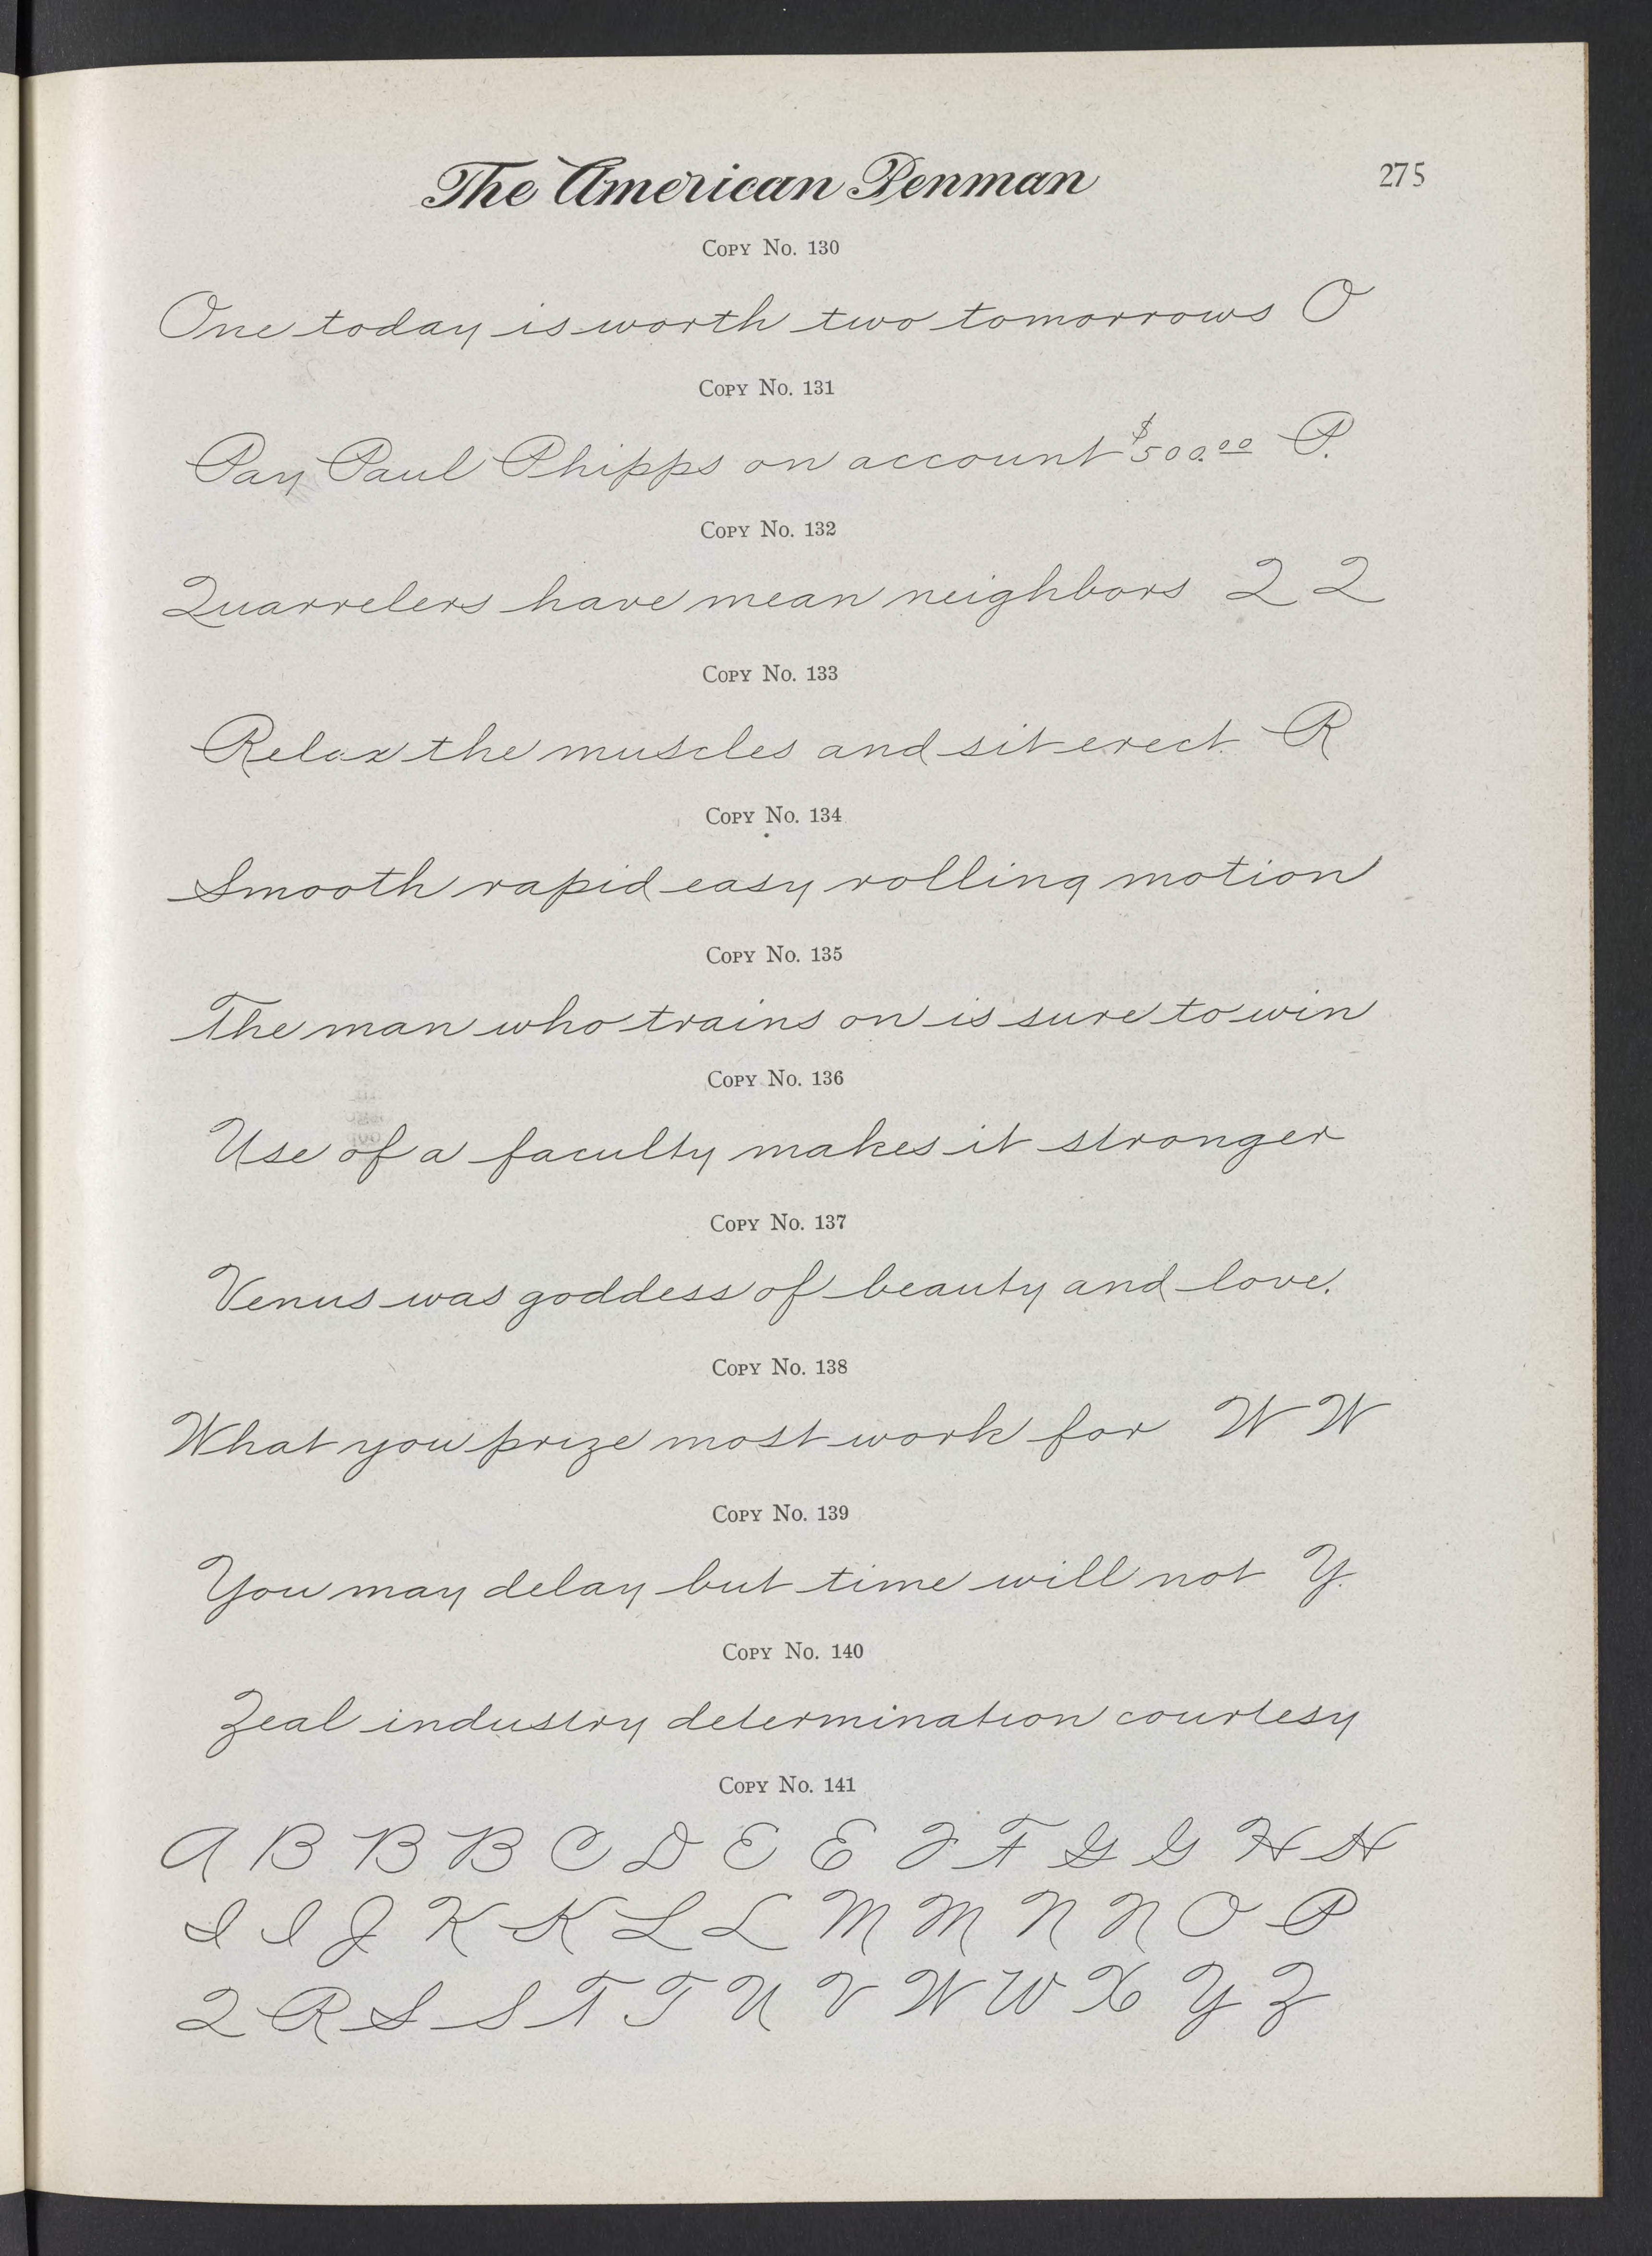 The American Penman 275
Copy No. 130
One today is worth two tomorrows O
Copy No. 131
Pay Paul Phipps on account $500.00 P.
Copy No. 132
Quarrelers have mean neighbors Q Q
Copy No. 133
Relax the muscles and sit erect. R
Copy No. 134
Smooth rapid easy rolling motion
Copy No. 135
The man who trains on is sure to win
Copy No. 136
Use of a faculty makes it stronger
Copy No. 137
Venus was goddess of beauty and love.
Copy No. 138
What you prize most work for W W
Copy No. 139
You may delay but time will not Y.
Copy No. 140
Zeal industry determination courtesy
Copy No. 141
A B B B C D E E F F G G H H
I I J K K L L M M N N O P
Q R S S T T U V W W X Y Z